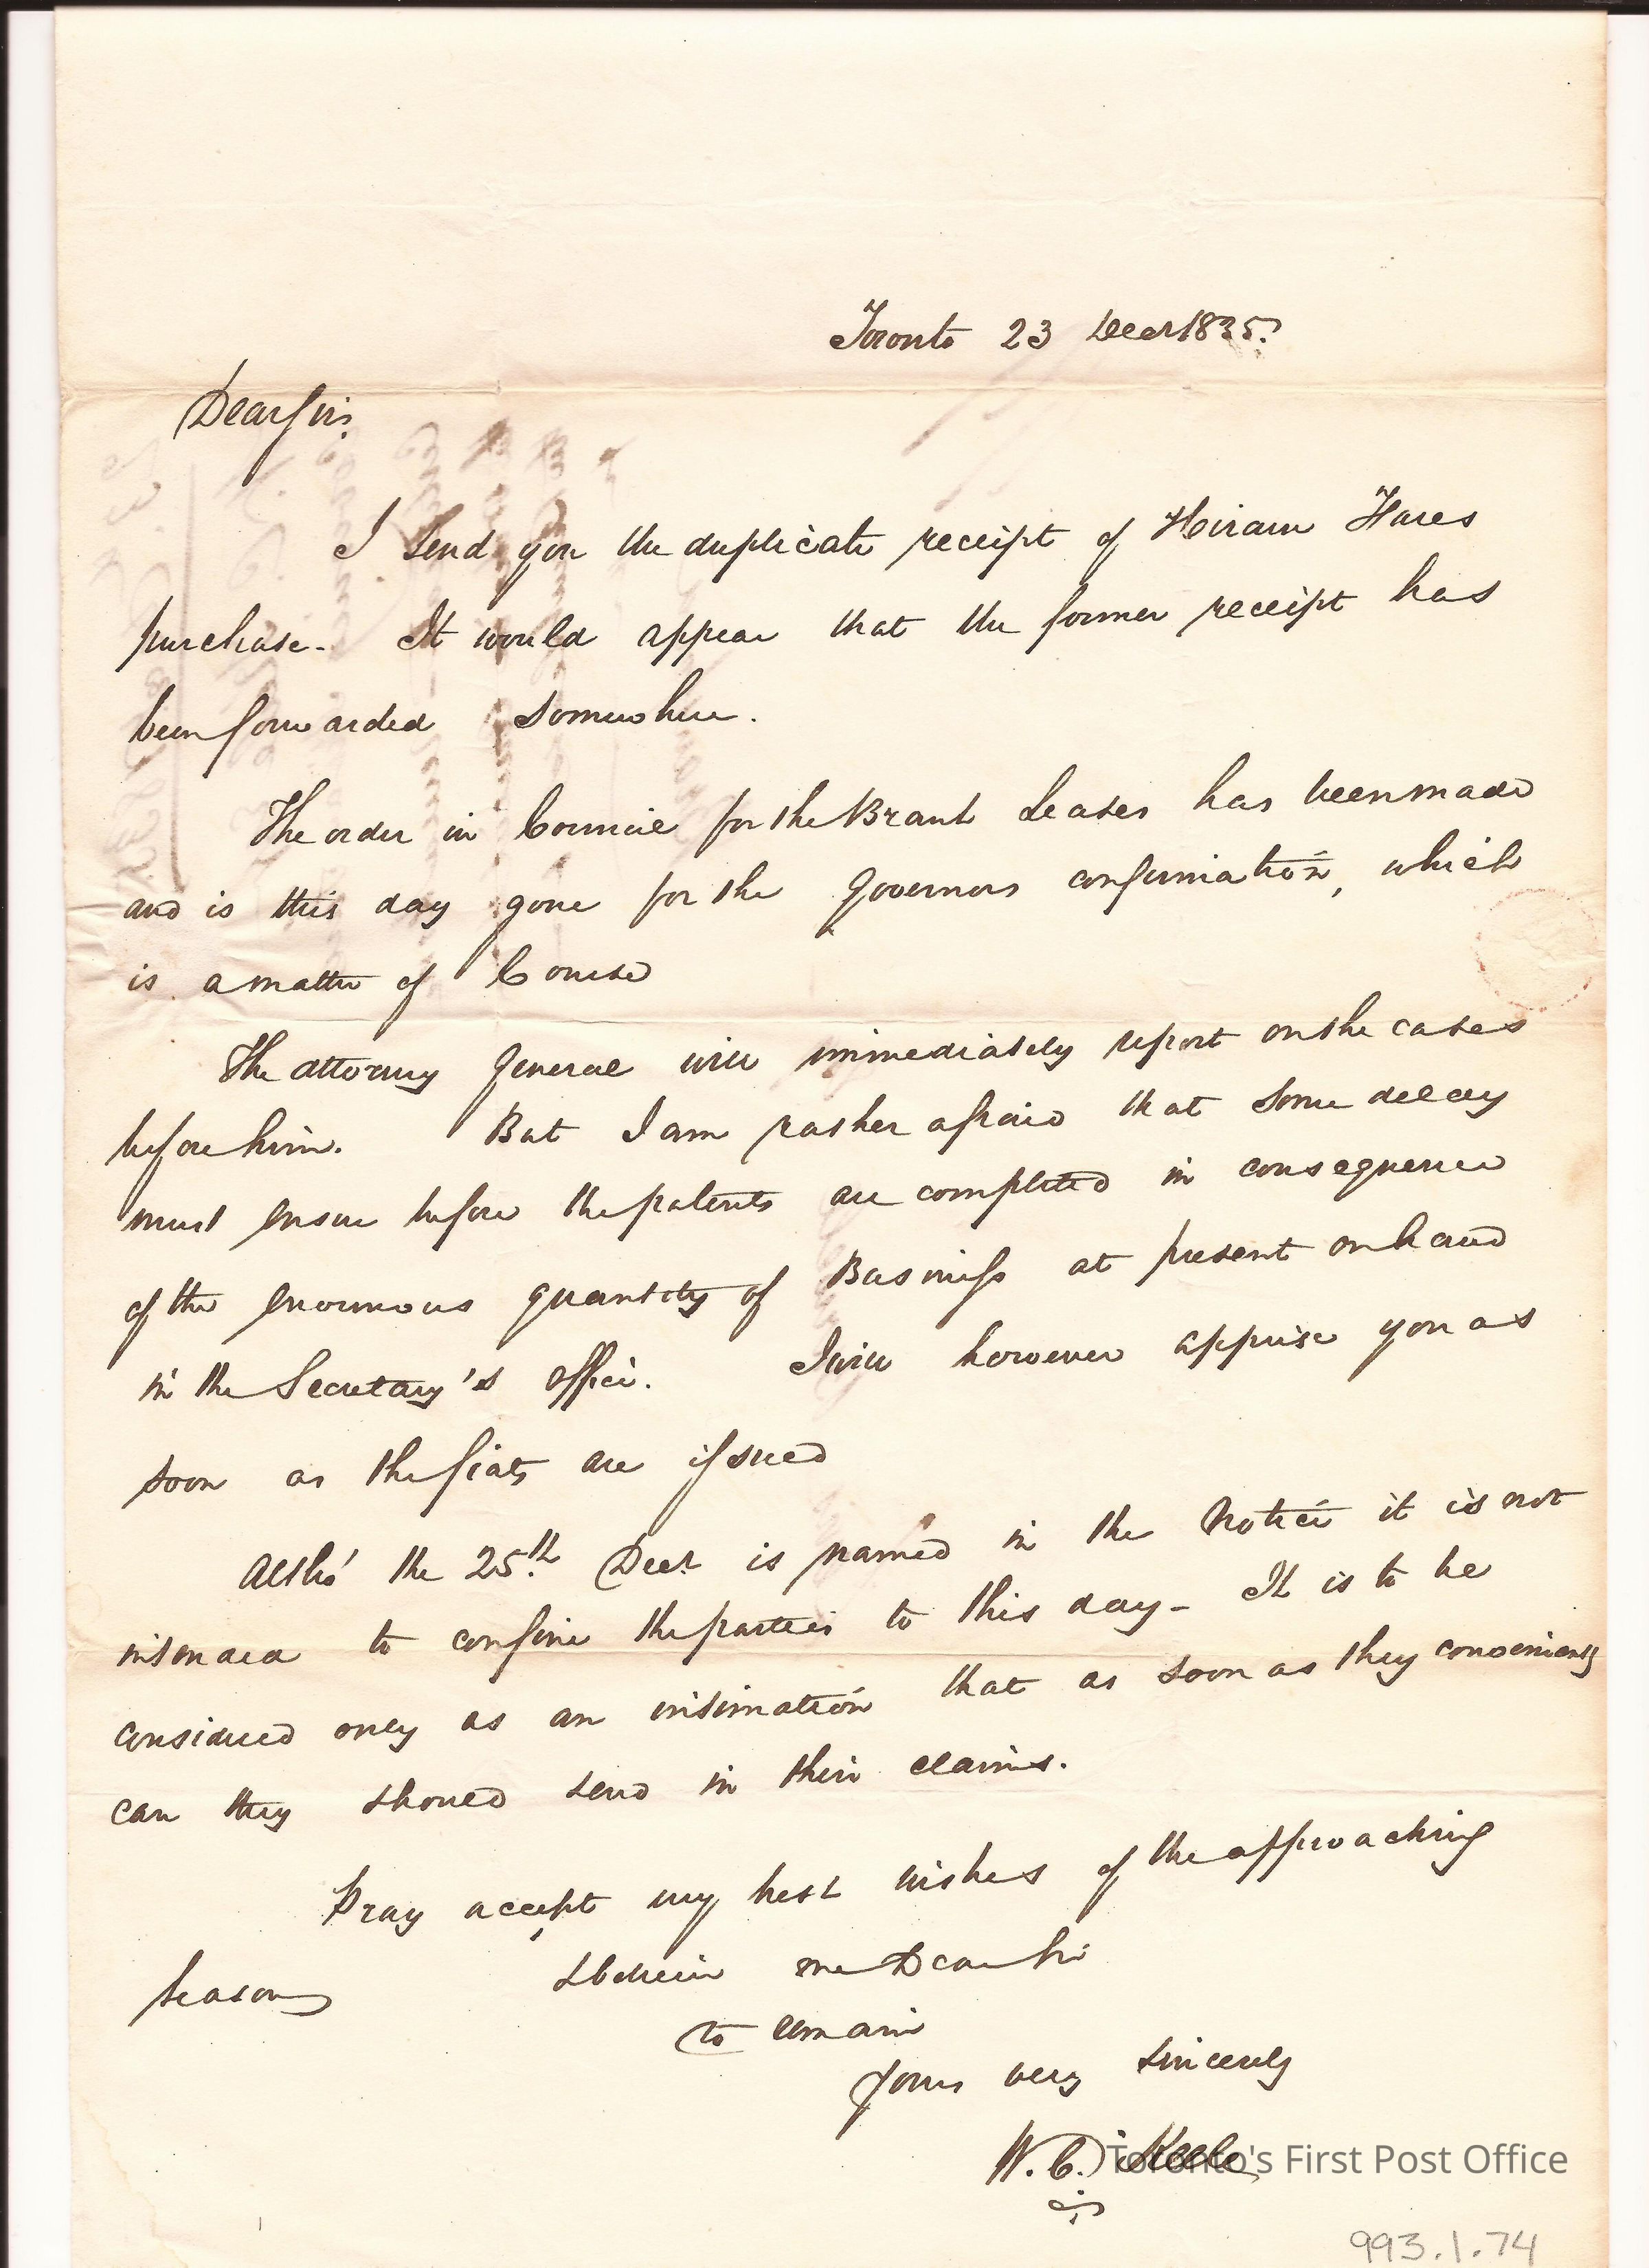 Toronto 23 Decr 1835.
Dear Sir.
I send you the duplicate receipt of Hiram Hares
purchase. It would appear that the former receipt has
been forwarded somewhere.
The order in Council for the Brant Leases has been made
and is this day gone for the Governors confirmation, which
is a matter of Course
The attorney General will immediately report on the cases
before him. But I am rather afraid that some delay
must ensue before the patents are completed in consequence
of the enormous quantity of Business at present on hand
in the Secretary's office. I will however apprise you as
soon as the fiats are issued
Altho' the 25th Decr is named in the Notice it is not
intended to confine the parties to this day - It is to be
considered only as an intimation that as soon as they conveniently
can they should send in their claims.
Pray accept my best wishes of the approaching
Season & believe me Dear Sir
to remain
Yours very sincerely
W. C. Keele
Toronto's First Post Office
993.1.74